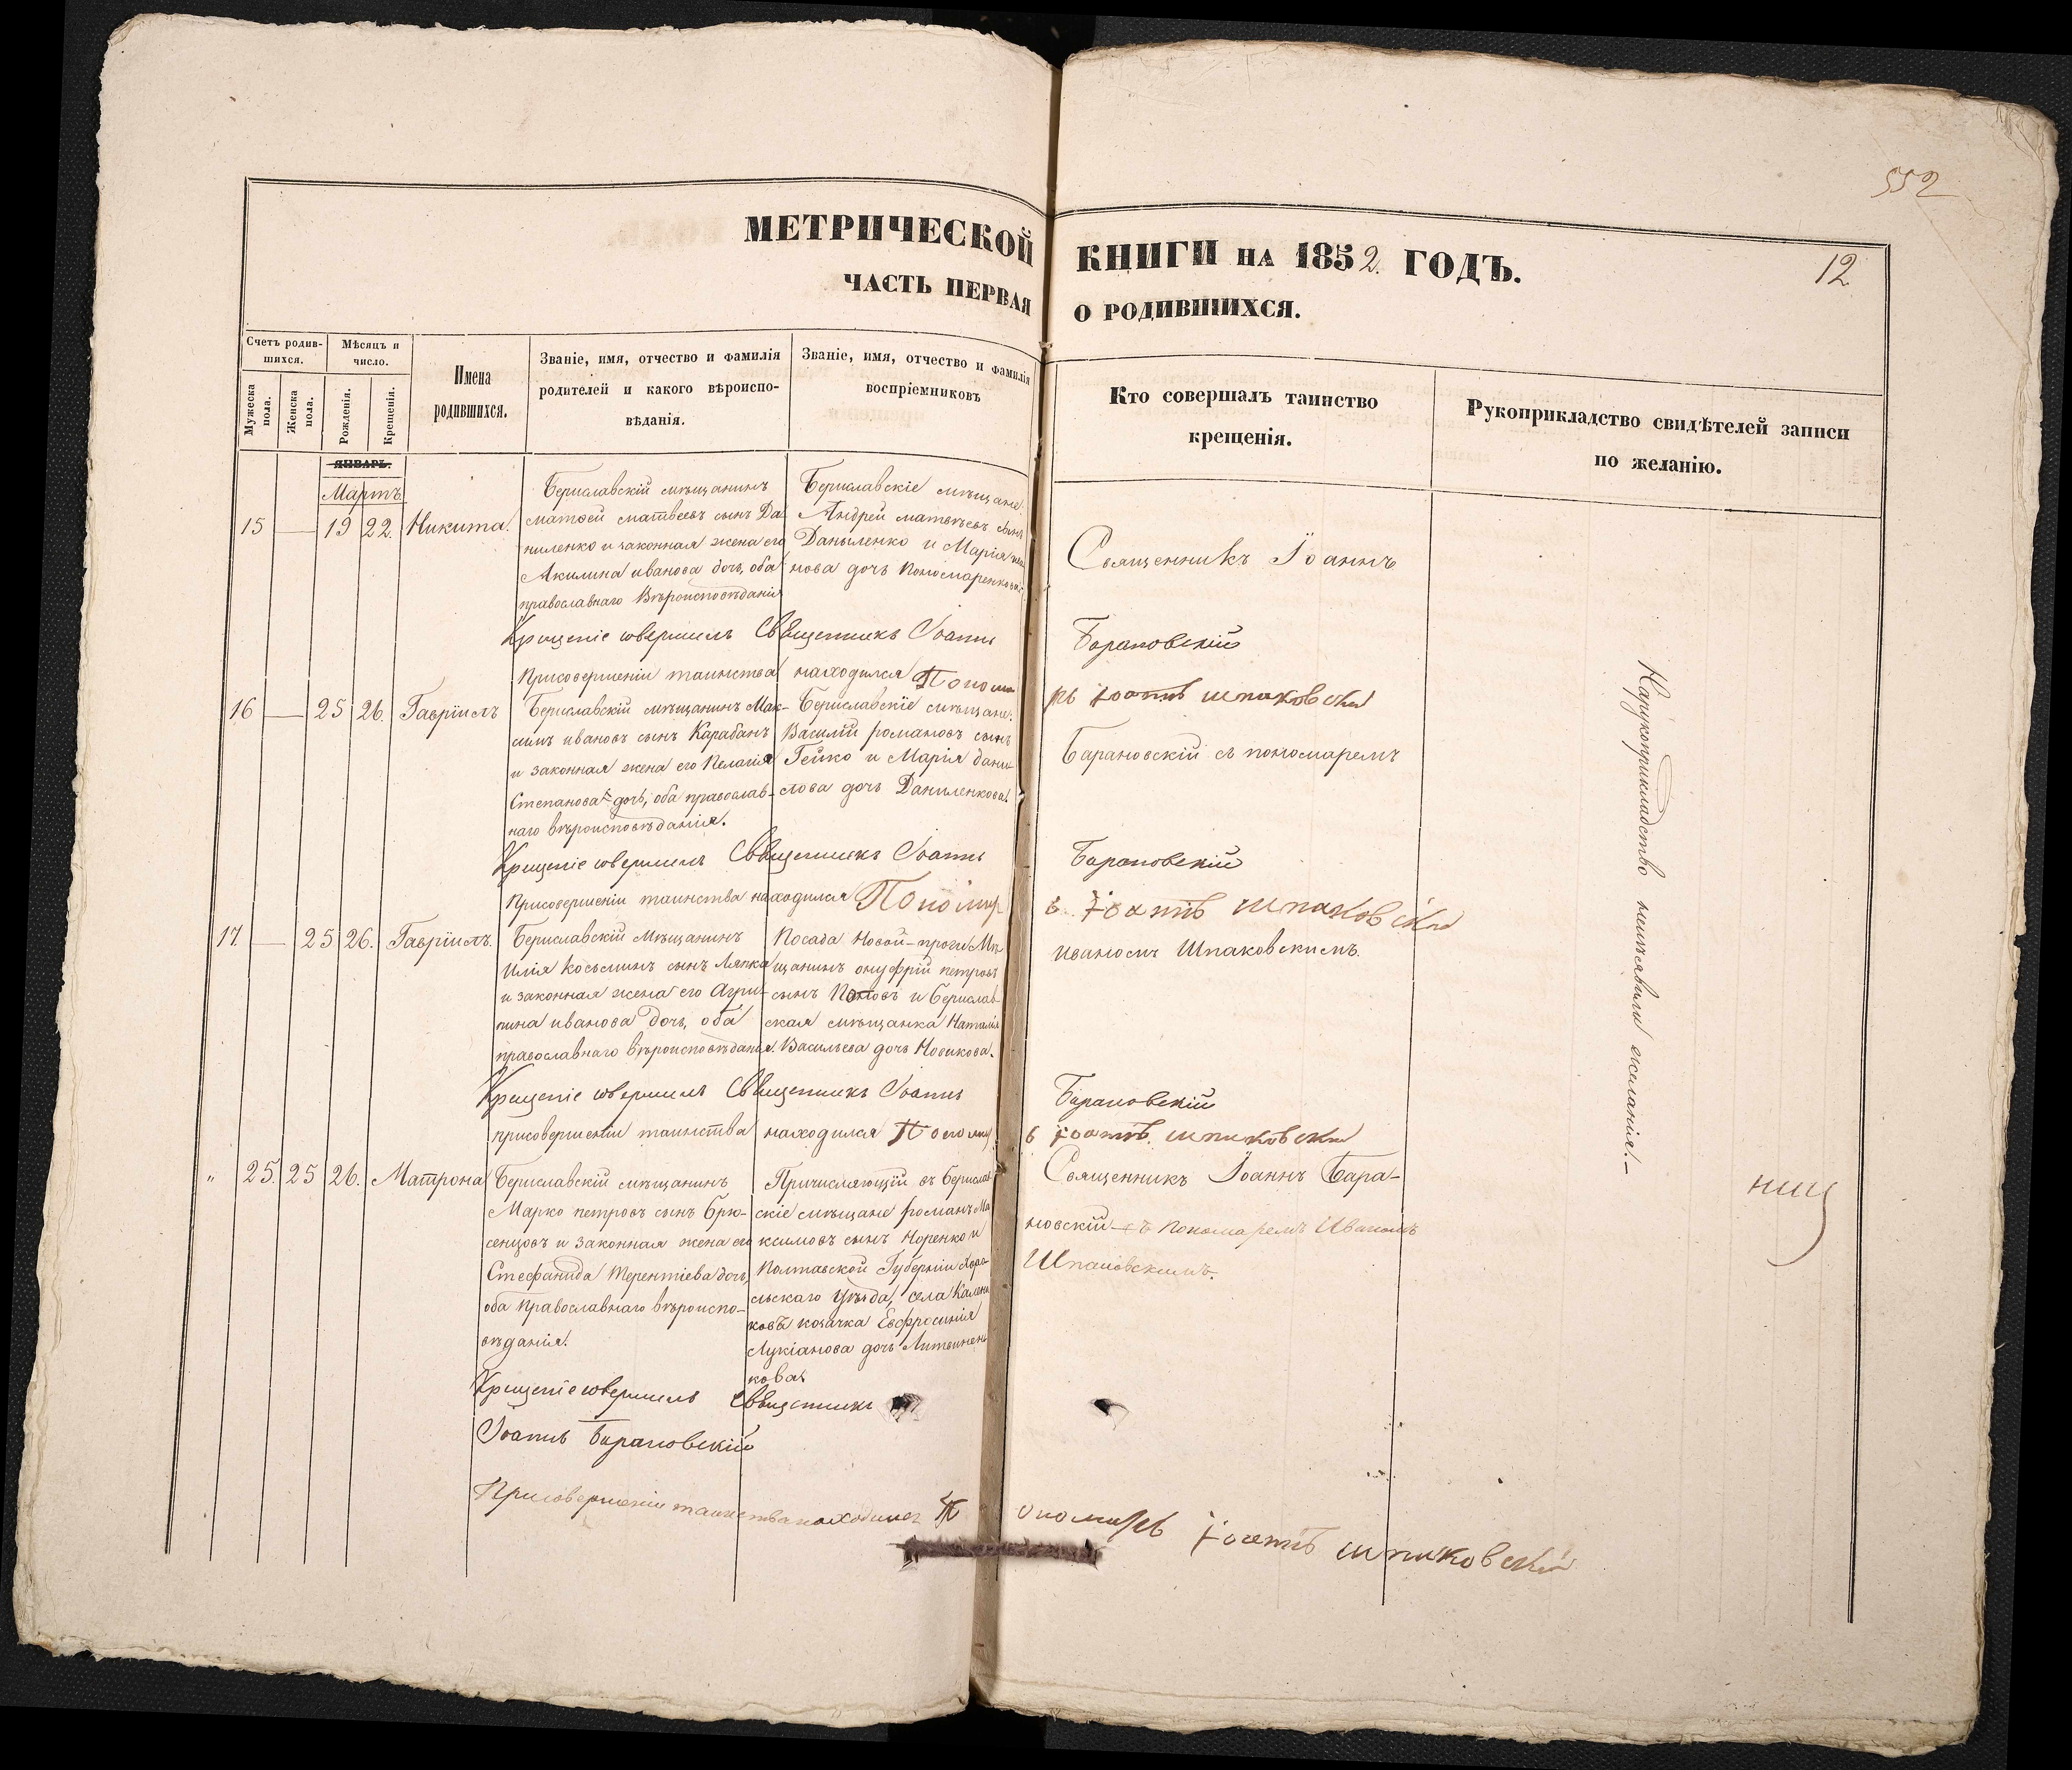 552
МЕТРИЧЕСКОЙ КНИГИ НА 1852. ГОДЪ.
12
ЧАСТЬ ПЕРВАЯ О РОДИВШИХСЯ.
Счетъ родив-
шихся.
Мужеска пола.
Женска пола.
Мѣсяцъ и
число.
Рожденія.
Крещенія.
Имена
родившихся.
Званіе, имя, отчество и фамилія
родителей и какого вѣроиспо-
вѣданія.
Званіе, имя, отчество и фамилія
воспріемниковъ
Кто совершалъ таинство
крещенія.
Рукоприкладство свидѣтелей записи
по желанію.
ЯНВАРЬ.
Мартъ
15 — 19 22. Никита.
Бериславскій мѣщанинъ
матѳей матвеевъ сынъ Да
ниленко и законная жена его
Акилина иванова дочь, оба
православнаго Вѣроисповѣданія
Бериславскіе мѣщане
Андрей матвѣевъ сынъ
Даныленко и Марія
нова дочь Пономаренкова
Священникъ Іоаннъ
Крещеніе совершилъ Священникъ Іоаннъ Барановскій
Присовершеніи таинства находился Пономарь Іоаннъ шпаковскій
16 — 25 26. Гавріилъ
Бериславскій мѣщанинъ Мак-
симъ ивановъ сынъ Карабанъ
и законная жена его Пелагія
Степанова дочь, оба православ-
наго вѣроисповѣданія.
Бериславскіе мѣщане:
Василій романовъ сынъ
Гейко и Марія дани-
лова дочь Даниленкова.
Барановскій съ пономаремъ
Крещеніе совершилъ Священникъ Іоаннъ Барановскій
Присовершеніи таинства находился Пономарь Іоаннъ шпаковскій
17. — 25 26. Гавріилъ.
Бериславскій Мѣщанинъ
Илія Косьминъ сынъ Ляпка
и законная жена его Агри-
пина иванова дочь, оба
православнаго вѣроисповѣданія.
Посада Новой-проги Мѣ
щанинъ онуфрій петровъ
сынъ Поповъ и Берислав-
ская мѣщанка Наталія
Васильева дочь Новикова.
иваномъ Шпаковскимъ.
Крещеніе совершилъ Священникъ Іоаннъ Барановскій
присовершеніи таинства находился Пономарь Іоаннъ шпаковскій
" 25. 25 26. Матрона
Бериславскій мѣщанинъ
Марко петровъ сынъ Брю-
сенцовъ и законная жена его
Стефанида Терентіева дочь,
оба Православнаго вѣроиспо-
вѣданія.
Причисляющій въ Берислав
скіе мѣщане романъ Ма
ксимовъ сынъ Норенко и
Полтавской Губерніи Хоро
льскаго Уѣзда, села Калени
ковъ козачка Евфросинія
Лукіанова дочь Литвинен
кова
Священникъ Іоаннъ Бара-
новскій съ пономаремъ Иваномъ
Шпаковскимъ.
Крещеніе совершилъ Священникъ
Іоаннъ Барановскій
Присовершеніи таинства находился Пономарь Іоаннъ шпаковскій
Карукоприкладство неизъявыли желанія.–